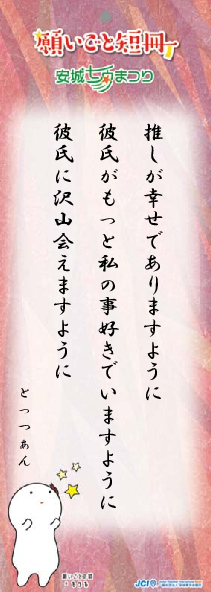 願いごと短冊
安城七夕まつり
推しが幸せでありますように
彼氏がもっと私の事好きでいますように
彼氏に沢山会えますように
とっつぁん
JCI